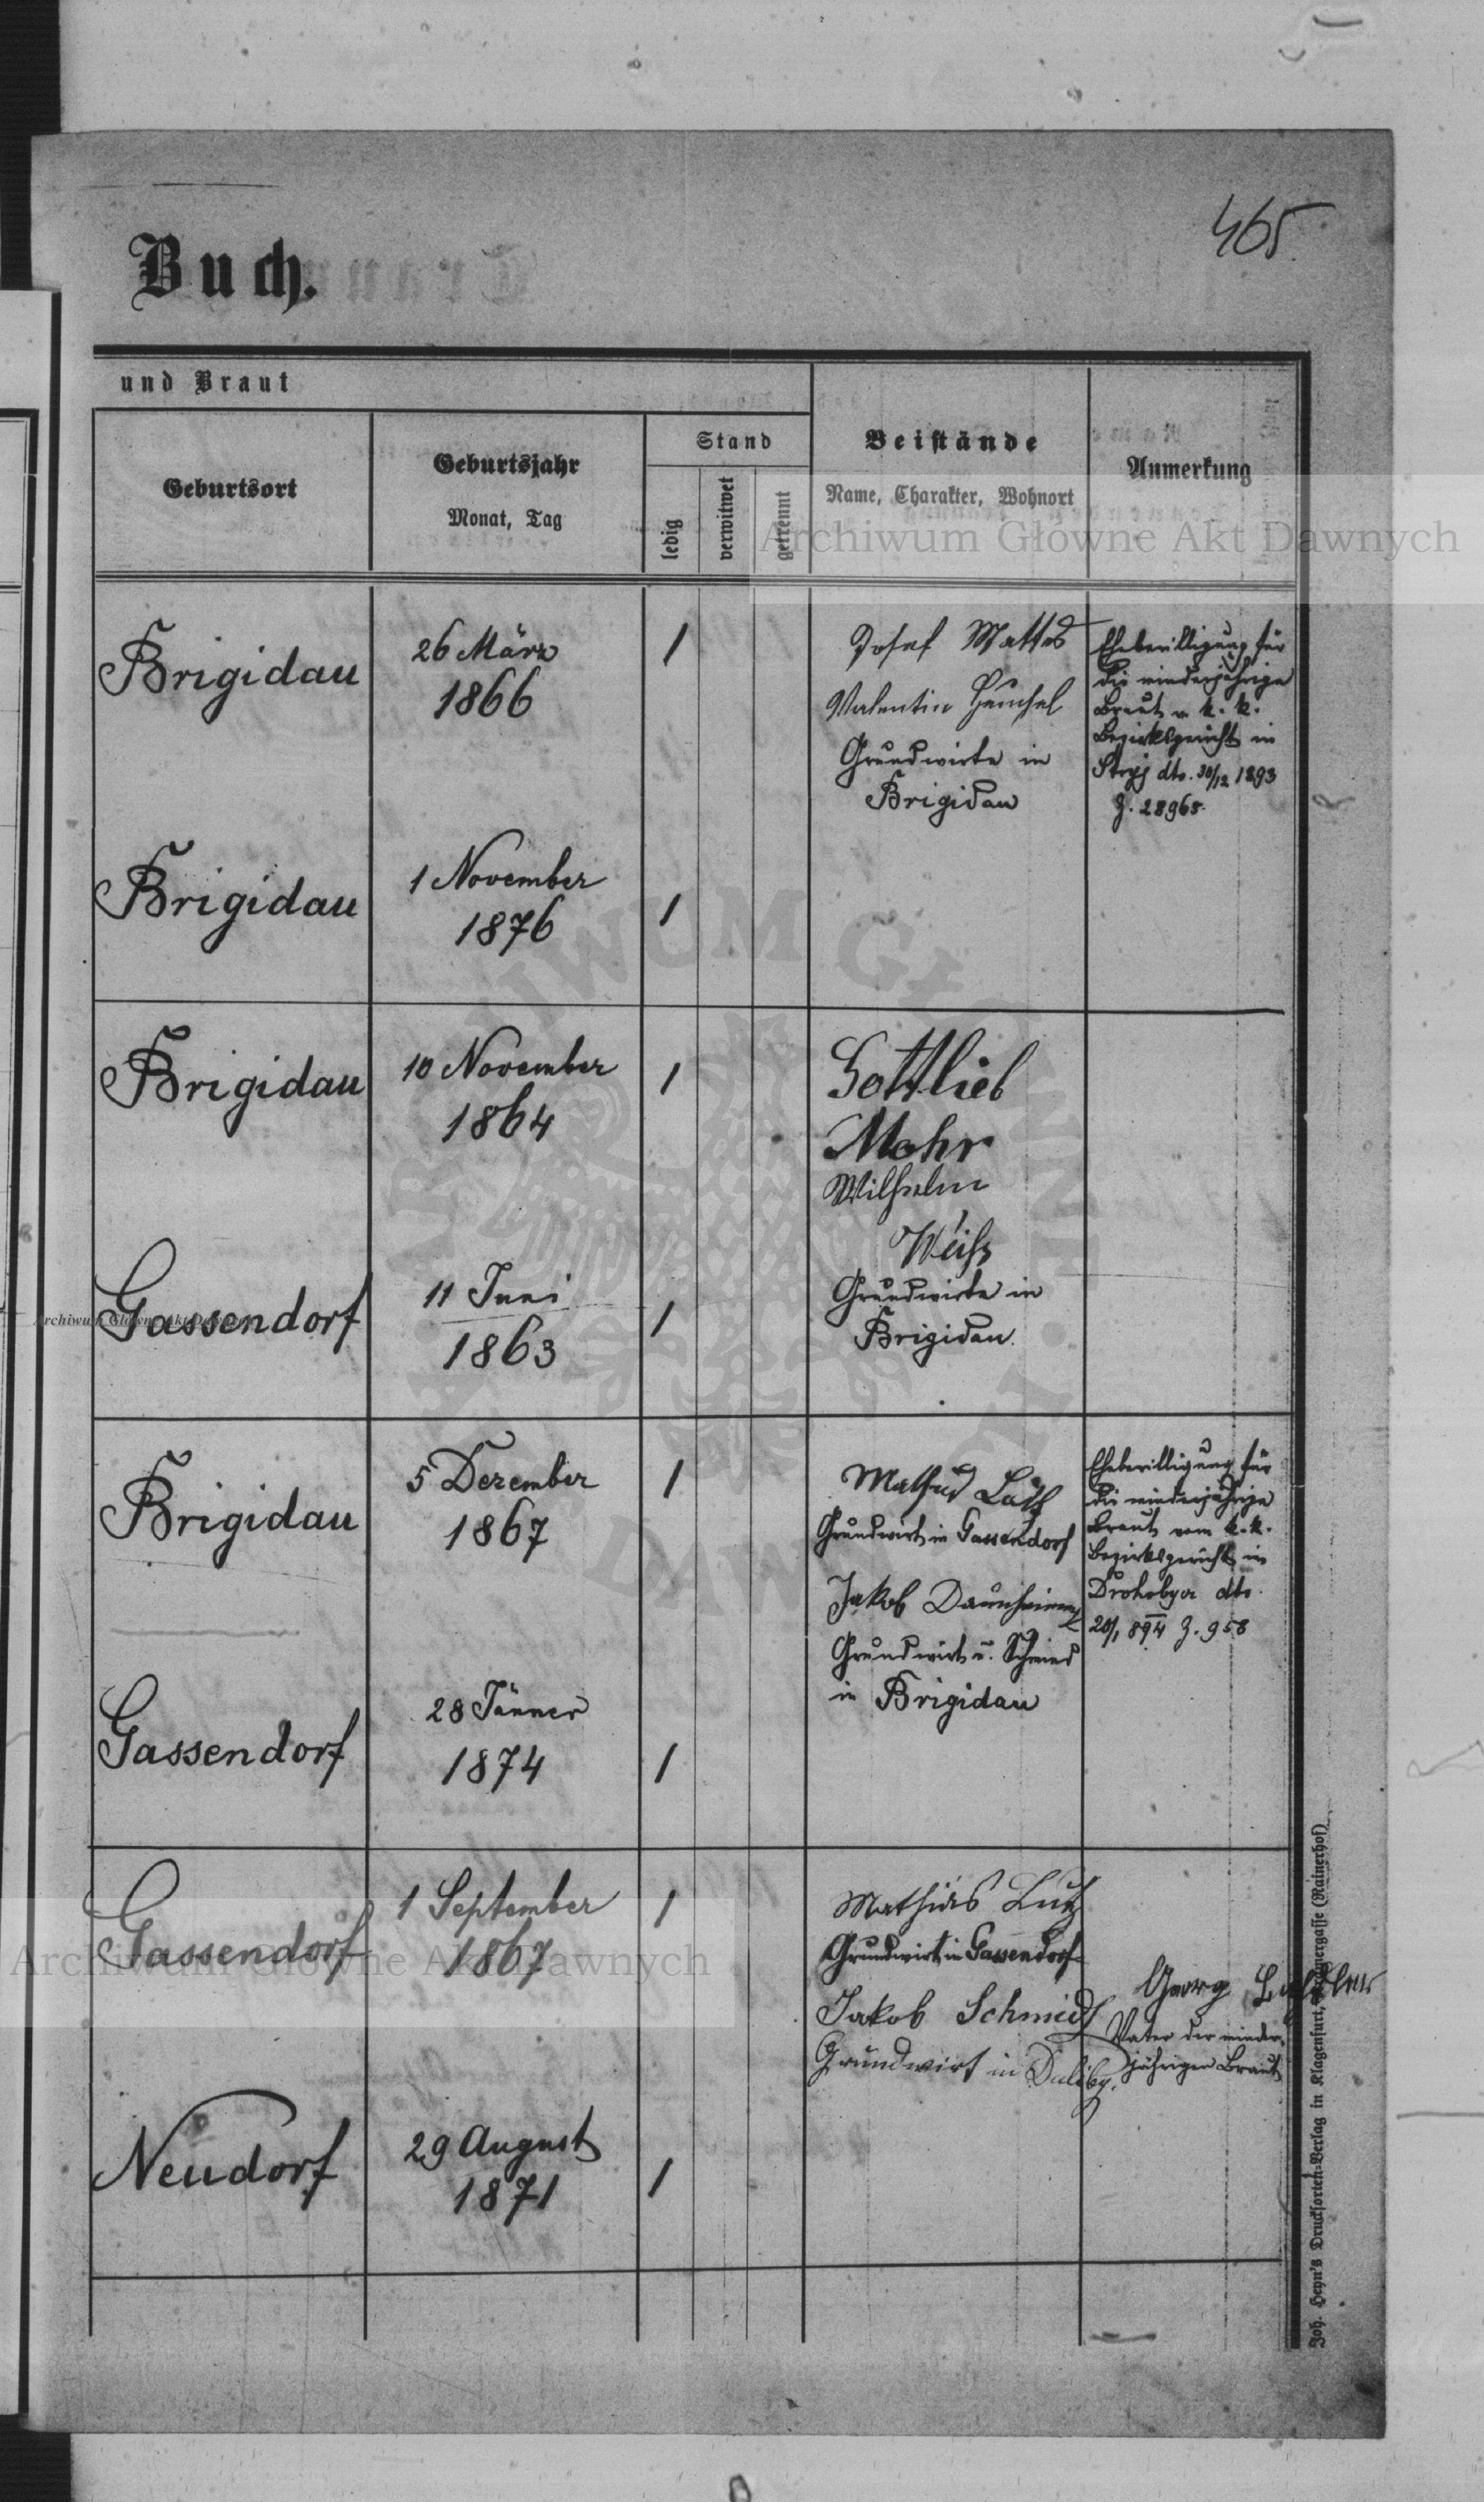 465
Buch.
und Braut
Geburtsort
Geburtsjahr
Monat, Tag
Stand
ledig
verwitwet
getrennt
Beistände
Name, Charakter, Wohnort
Anmerkung
Archiwum Głowne Akt Dawnych
Brigidau
26 März
1866
1
Josef Mattes
Valentin
Grundwirte in
Brigidau
Ehebewilligung für
die minderjährige
Braut v. k. k.
Bezirksgericht in
Stryj dto. 30/12 1893
Z. 28965.
Brigidau
1 November
1876
1
Brigidau
10 November
1864
1
Gottlieb
Mohr
Wilhelm
Weiß
Grundwirte in
Brigidau.
Gassendorf
11 Juni
1863
1
Archiwum Głowne Akt Dawnych
Brigidau
5 Dezember
1867
1
Grundwirt in Gassendorf
Jakob
Grundwirt u. Schmied
in Brigidau
Ehebewilligung für
die minderjährige
Braut vom k. k.
Bezirksgericht in
Drohobycz dto.
20/1 894 Z. 958
Gassendorf
28 Jänner
1874
1
Gassendorf
1 September
1867
1
Mathias Lutz
Grundwirt in Gassendorf
Jakob Schmidt
Grundwirt in
Georg
Vater der minder-
jährigen Braut
Archiwum Głowne Akt Dawnych
Neudorf
29 August
1871
1
Joh. Heyn's Drucksorten-Verlag in Klagenfurt, (Rainerhof)